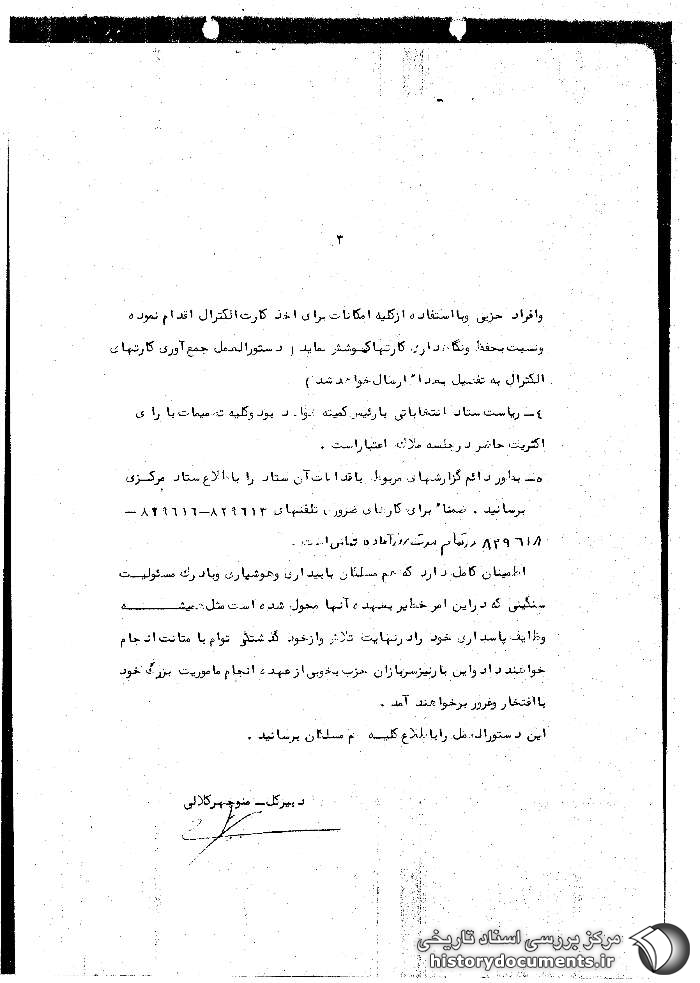 ۳
وافراد حزبی وبا استفاده ازکلیه امکانات برای اخذ کارت الکترال اقدام نموده
ونسبت بحفظ ونگاهداری کارتها کوشش نماید ( دستورالعمل جمع آوری کارتهای
الکترال به تفصیل بعدا" ارسال خواهد شد )
٤ـ ریاست ستاد انتخاباتی با رئیس کمیته خواهد بود وکلیه تصمیمات با رای
اکثریت حاضر در جلسه ملاک اعتبار است .
۵ـ بطور دائم گزارشهای مربوط باقدامات آن ستاد را باطلاع ستاد مرکزی
برسانید . ضمنا" برای کارهای ضروری تلفنهای ۸۲۹۶۱۳ـ۸۲۹۶۱۶ ـ
۸۲۹۶۱۸ در تمام مدت روز آماده تماس است .
اطمینان کامل دارد که هم مسلکان بابیداری وهوشیاری وبادرک مسئولیت
سنگینی که در این امر خطیر بعهده آنها محول شده است مثل همیشه
وظایف پاسداری خود را درنهایت تلاش وازخود گذشتگی توام با متانت انجام
خواهند داد واین بار نیز سربازان حزب بخوبی از عهده انجام ماموریت بزرگ خود
با افتخار وغرور برخواهند آمد .
این دستورالعمل را باطلاع کلیه هم مسلکان برسانید .
دبیرکل ـ منوچهرکلالی
مرکز بررسی اسناد تاریخی
historydocuments.ir